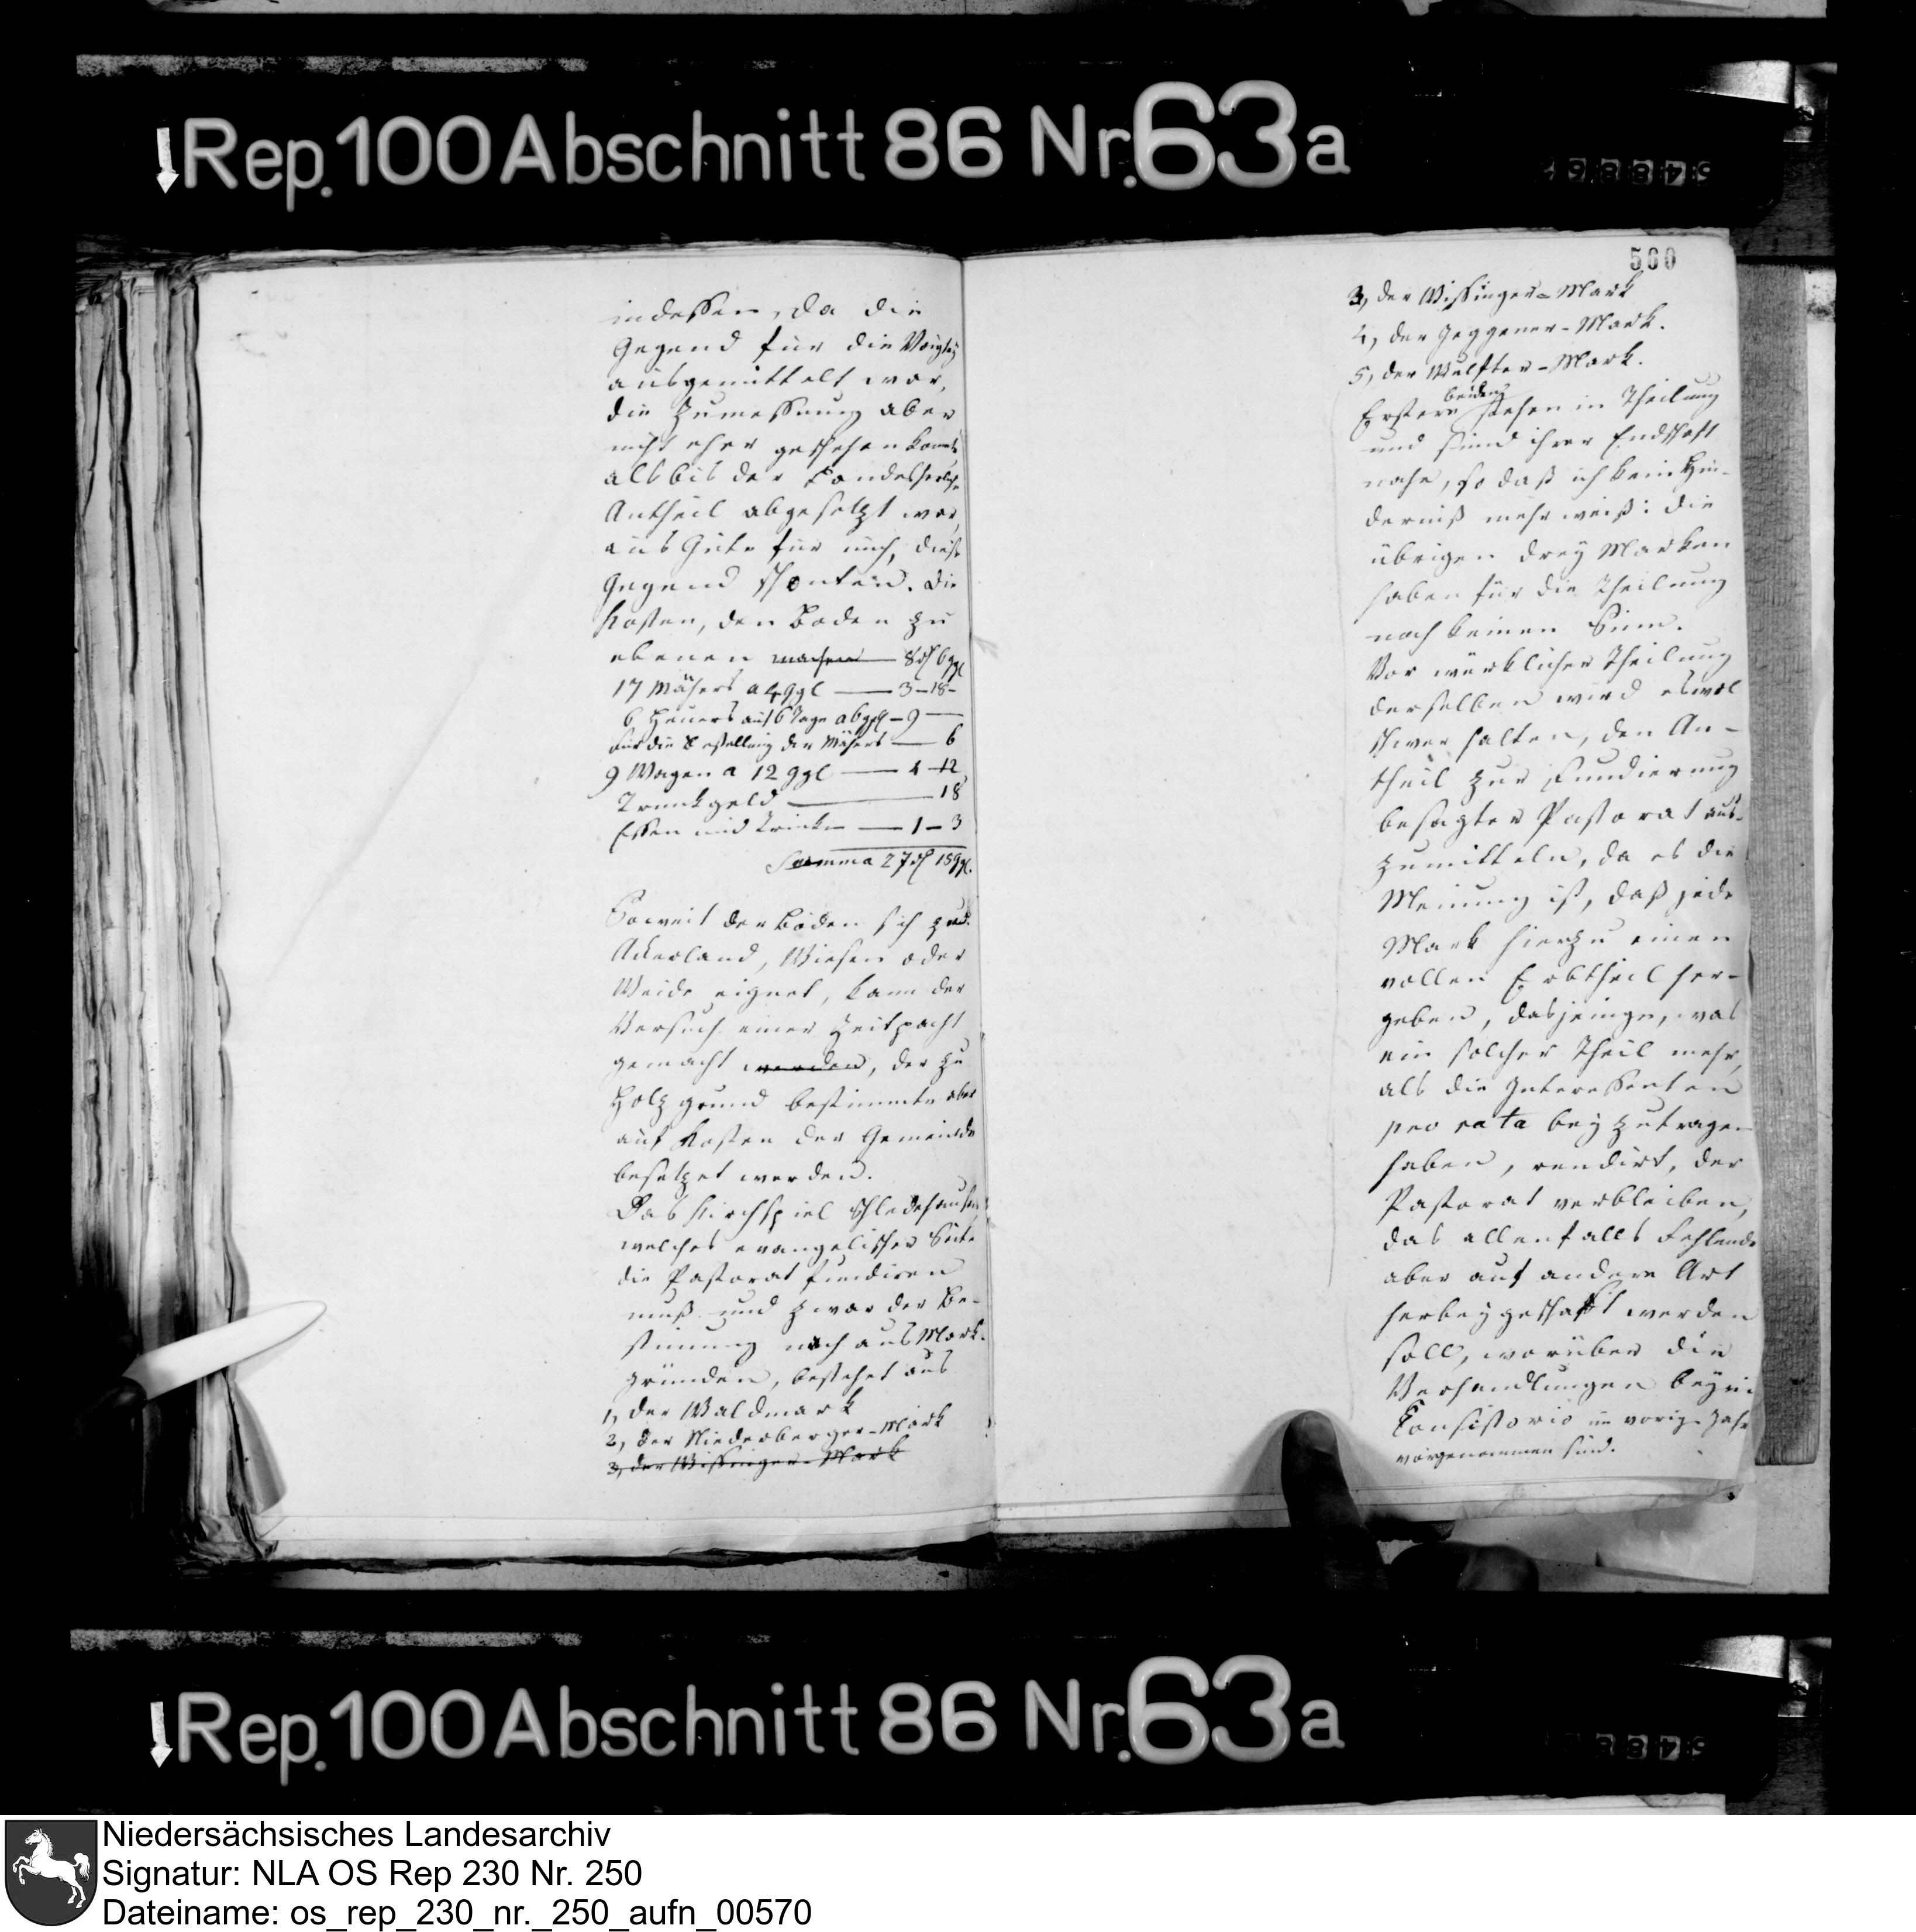 Rep. 100 Abschnitt 86 Nr. 63a
indessen, da die
Gegend für die Voigtey
ausgemittelt war,
die Zumessung aber
nicht eher geschehen konnte
als bis der Landesherrliche
Antheil abgesetzt war,
aus Güte für mich, diese
Gegend schonten. Die
Kosten, den Boden zu
ebenen machen — 8 rl 6 ggl
17 Mähers a 4 ggl — 3-18-
6 Heuers auf 6 Tage a 6 ggl — 9 —
für die Bestellung der Mähers — 6
9 Wagen a 12 ggl — 4-12
Trinkgeld — 18
Essen und Trinken — 1-3
Summa 27 rl 15 ggl.
Soweit der Boden sich zu
Ackerland, Wiesen oder
Weide eignet, kann der
Versuch einer Zeitpacht
gemacht werden, der zu
Holzgrund bestimmte aber
auf Kosten der Gemeinde
besetzet werden.
Das Kirchspiel Schledehausen
welches evangelischer Seite
die Pastorat fundiren
muß und zwar der Be-
stimmung nach aus Mark-
gründen, bestehet aus
1, der Waldmark
2, der Niederberger-Mark
3, der Wissinger-Mark
500
3, der Wissinger-Mark
4, der Jeggener-Mark.
5, der Wulfter-Mark.
beiden
Erstere stehen in Theilung
und sind ihrer Endschaft
nahe, so daß ich kein Hin-
derniß mehr weiß: die
übrigen drey Marken
haben für die Theilung
noch keinen Sinn.
Vor würklicher Theilung
derselben wird es wol
schwer halten, den An-
theil zur Fundierung
besagter Pastorat aus-
zumitteln, da es die
Meinung ist, daß jede
Mark hierzu einen
vollen Erbtheil her-
geben, dasjenige, was
ein solcher Theil mehr,
als die Interessenten
pro rata beyzutragen
haben, rendirt, der
Pastorat verbleiben,
das allenfalls Fehlende
aber auf andere Art
herbeygeschafft werden
soll, worüber die
Verhandlungen beym
Consistorio im vorig. Jahr
vorgenommen sind.
Rep. 100 Abschnitt 86 Nr. 63a
Niedersächsisches Landesarchiv
Signatur: NLA OS Rep 230 Nr. 250
Dateiname: os_rep_230_nr._250_aufn_00570